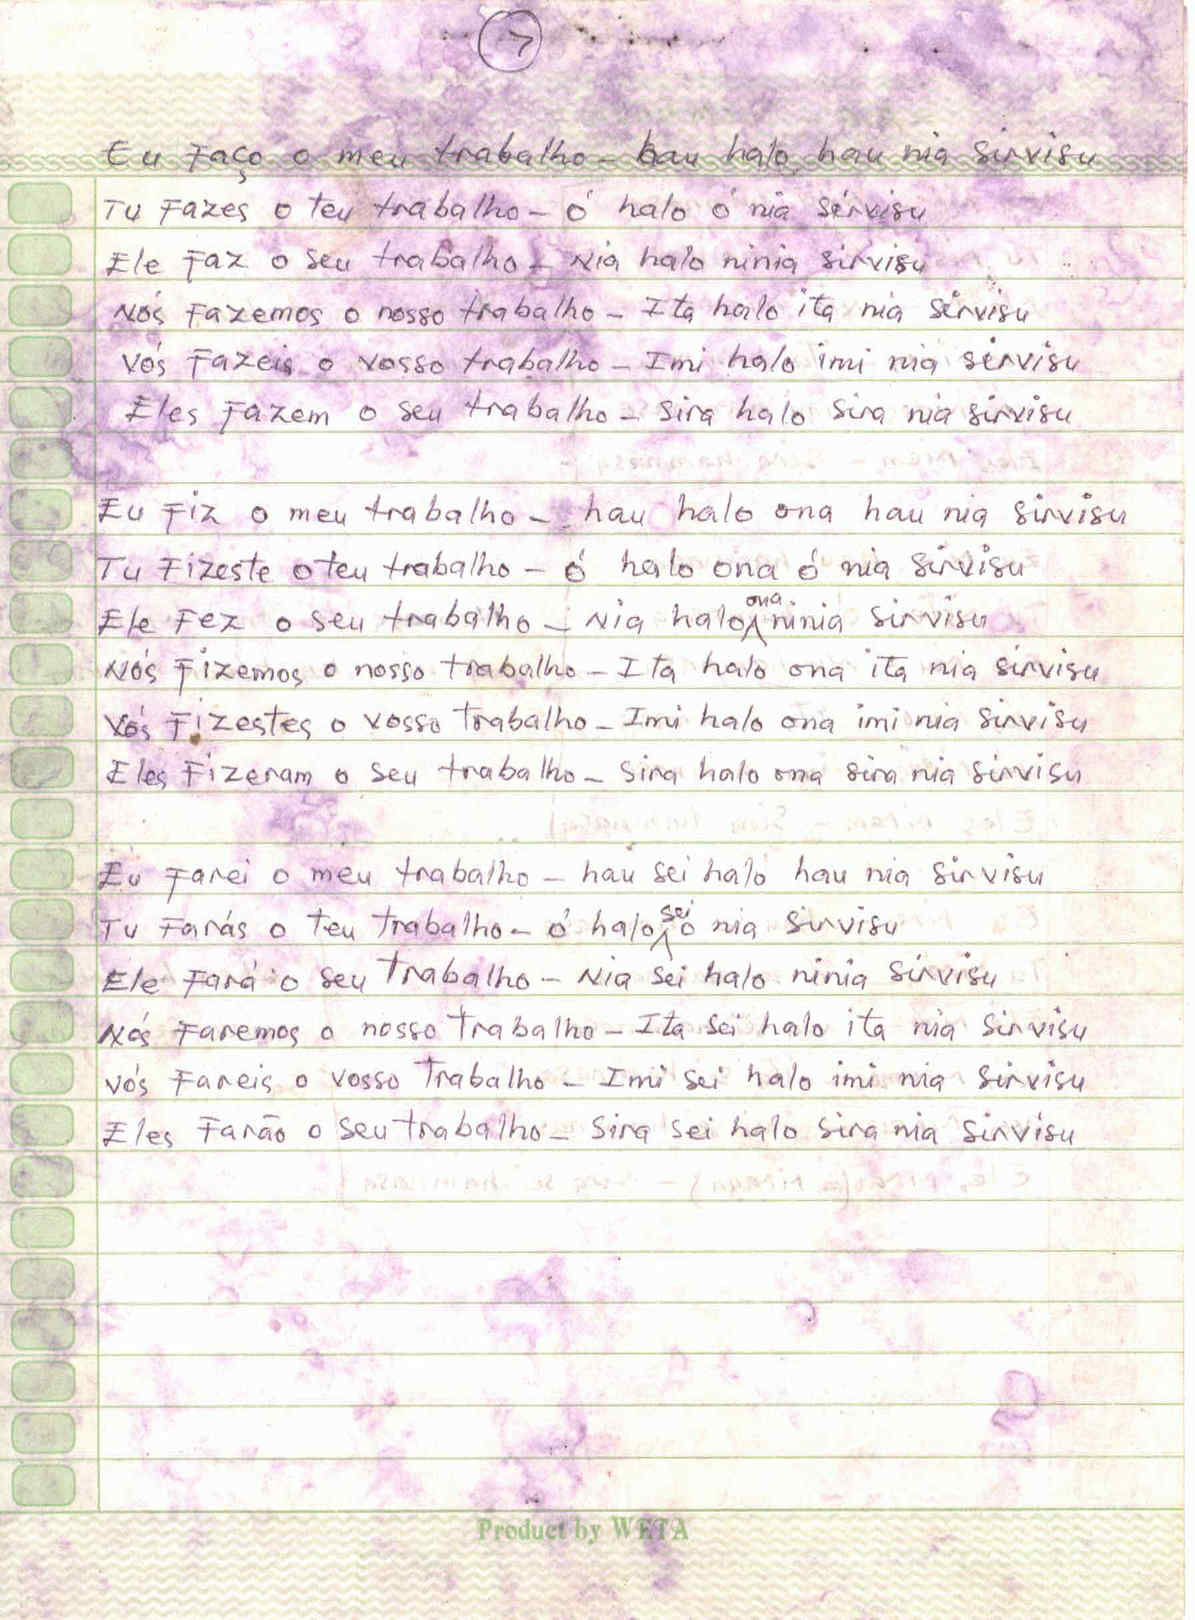 7
Eu Faço o meu trabalho - hau halo hau nia sirvisu
Tu Fazes o teu trabalho - ó halo ó nia sérvisu
Ele Faz o seu trabalho - Nia halo ninia sirvisu
Nós Fazemos o nosso trabalho - Ita halo ita nia sérvisu
Vós Fazeis o vosso trabalho - Imi halo imi nia sérvisu
Eles Fazem o seu trabalho - Sira halo sira nia sirvisu
Eu Fiz o meu trabalho - hau halo ona hau nia sirvisu
Tu Fizeste o teu trabalho - ó halo ona ó nia sirvisu
Ele Fez o seu trabalho - Nia halo ona ninia sirvisu
Nós Fizemos o nosso trabalho - Ita halo ona ita nia sirvisu
Vós Fizestes o vosso trabalho - Imi halo ona imi nia sirvisu
Eles Fizeram o seu trabalho - Sira halo ona sira nia sirvisu
Eu Farei o meu trabalho - hau sei halo hau nia sirvisu
Tu Farás o teu trabalho - ó halo sei ó nia sirvisu
Ele Fará o seu trabalho - Nia sei halo ninia sirvisu
Nós Faremos o nosso trabalho - Ita sei halo ita nia sirvisu
Vós Fareis o vosso trabalho - Imi sei halo imi nia sirvisu
Eles Farão o seu trabalho - Sira sei halo sira nia sirvisu
Product by WETA